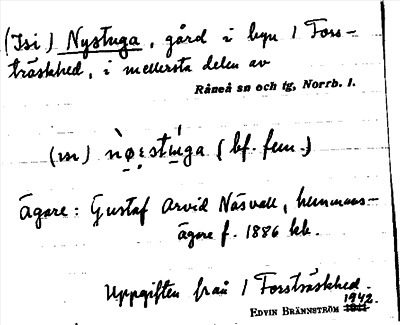 (Isi) Nystuga, gård i byn 1 Fors-
träskhed, i mellersta delen av
Råneå sn och tg, Norrb. l.
(ısı) nø̀ɛstı̷́ga (bf. fem.)
Ägare: Gustaf Arvid Näsvall, hemmans-
ägare f. 1886 hb.
Uppgiften från 1 Forsträskhed.
1942.
EDVIN BRÄNNSTRÖM 1941.